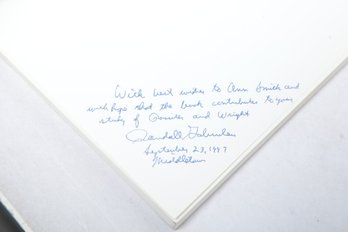 With best wishes to Ann Smith and
with hope that the book contributes to your
study of and Wright
Randall
September 23, 1997
Middletown